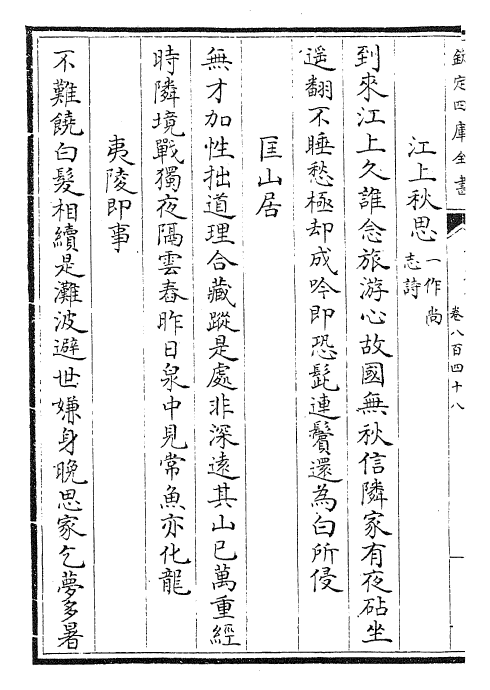 欽定四庫全書
卷八百四十八
江上秋思一作尚志詩
到來江上久誰念旅游心故國無秋信隣家有夜砧坐
遥翻不睡愁極却成吟即恐髭連鬢還為白所侵
匡山居
無才加性拙道理合藏蹤是處非深遠其山已萬重經
時隣境戰獨夜隔雲舂昨日泉中見常魚亦化龍
夷陵即事
不難饒白髮相續是灘波避世嫌身晚思家乞夢多暑